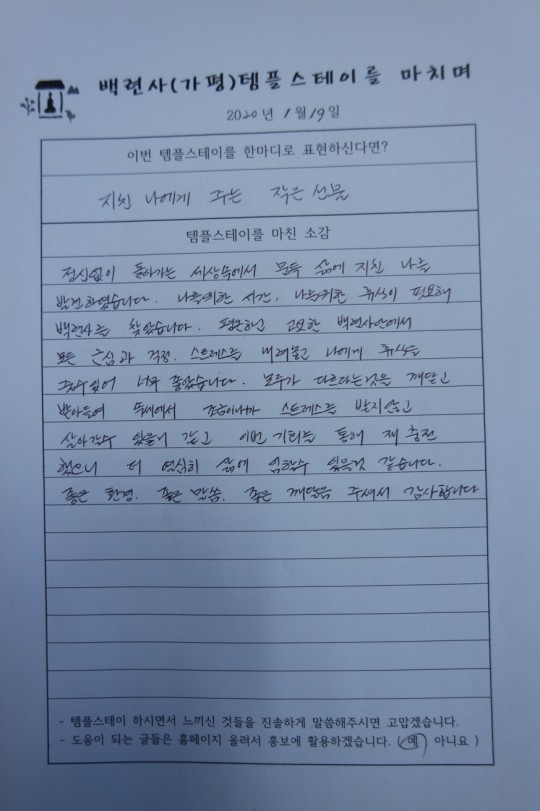 백련사(가평)템플스테이를 마치며
2020년 1월 19일
이번 템플스테이를 한마디로 표현하신다면?
지친 나에게 주는 작은 선물
템플스테이를 마친 소감
정신없이 돌아가는 세상속에서 모두 삶에 지친 나를
발견하였습니다. 나를위한 시간, 나를위한 휴식이 필요해
백련사를 찾았습니다. 평온하고 고요한 백련사안에서
모든 근심과 걱정, 스트레스를 내려놓고 나에게 휴식을
줄수있어 너무 좋았습니다. 모두가 다르다는것을 깨닫고
받아들여 속세에서 조금이나마 스트레스를 받지않고
살아갈수 있을거 같고 이번 기회를 통해 재충전
했으니 더 열심히 삶에 임할수 있을것 같습니다.
좋은 환경, 좋은 말씀, 좋은 깨달음 주셔서 감사합니다
- 템플스테이 하시면서 느끼신 것들을 진솔하게 말씀해주시면 고맙겠습니다.
- 도움이 되는 글들은 홈페이지 올려서 홍보에 활용하겠습니다. ( 예 아니요 )